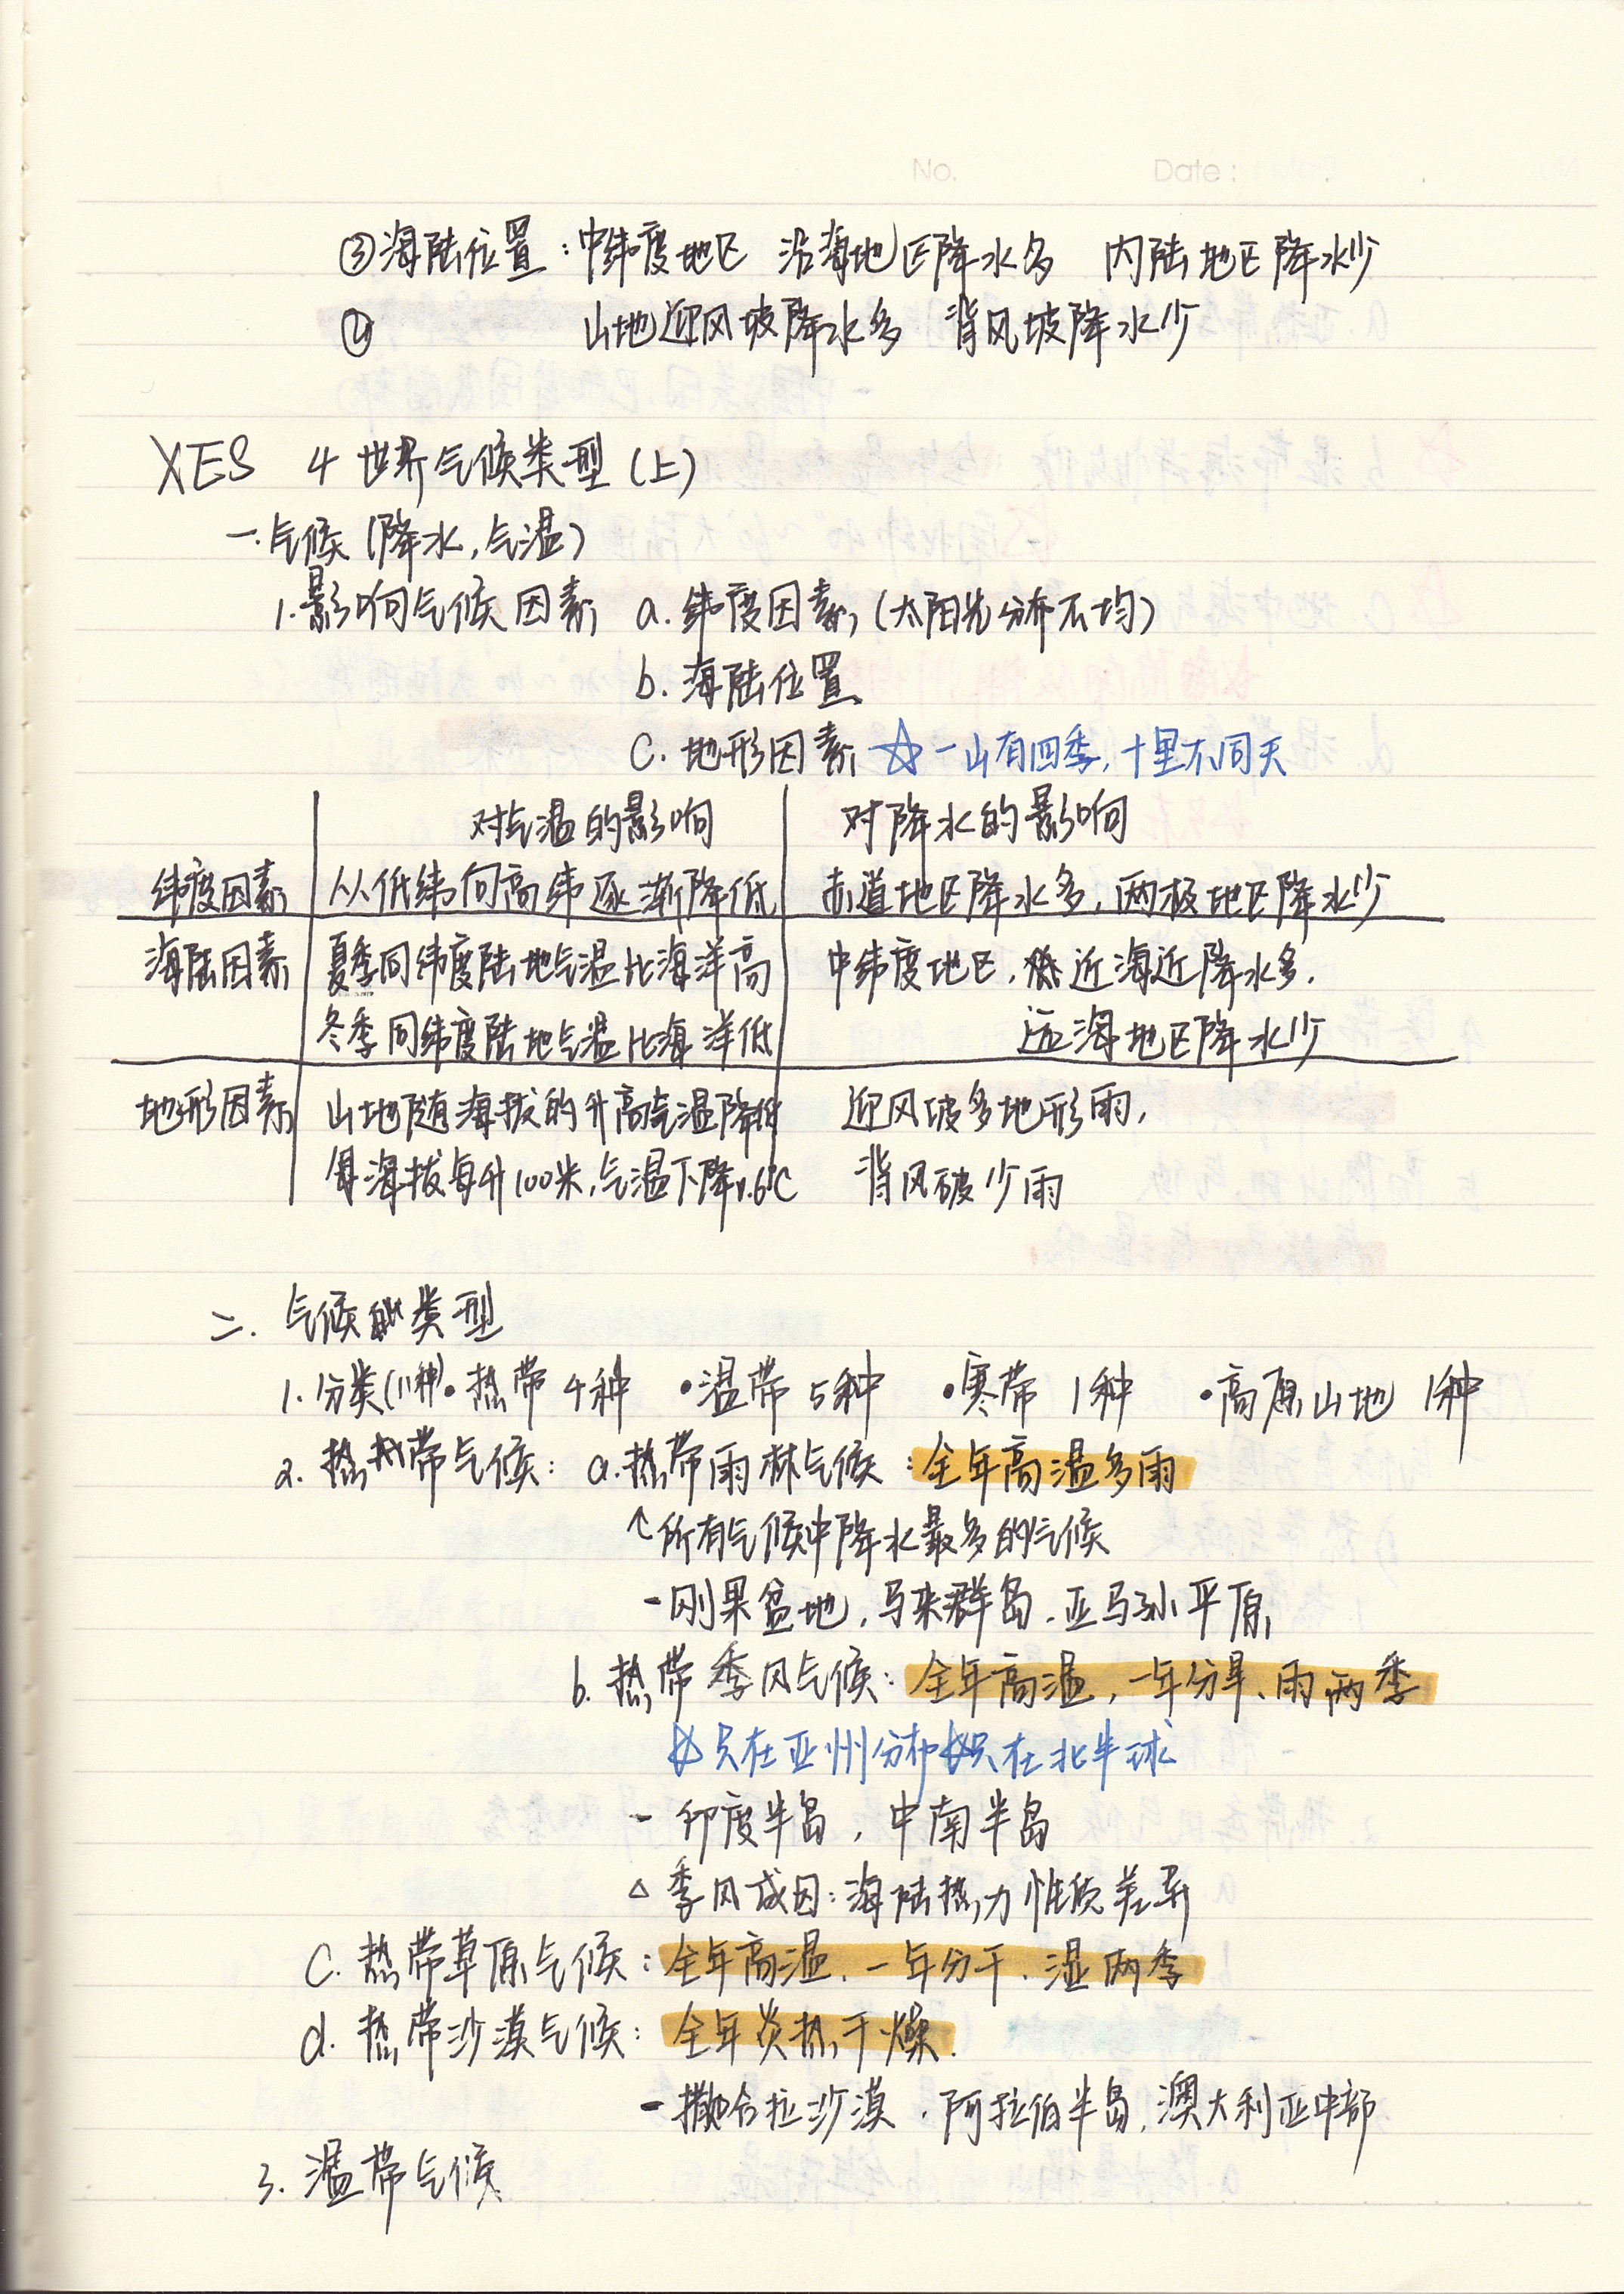 No. Date:
③海陆位置:中纬度地区 沿海地区降水多 内陆地区降水少
④ 山地迎风坡降水多 背风坡降水少
XES 4 世界气候类型(上)
一.气候(降水,气温)
1.影响气候因素 a.纬度因素(太阳光分布不均)
b.海陆位置
c.地形因素 ☆一山有四季,十里不同天
对气温的影响 对降水的影响
纬度因素 从低纬向高纬逐渐降低 赤道地区降水多,两极地区降水少
海陆因素 夏季同纬度陆地气温比海洋高 中纬度地区,近海近降水多.
冬季同纬度陆地气温比海洋低 远海地区降水少
地形因素 山地随海拔的升高气温降低 迎风坡多地形雨,
海拔每升100米,气温下降0.6℃ 背风破少雨
二.气候类型
1.分类(11种)•热带4种 •温带5种 •寒带1种 •高原山地1种
2.热带气候:a.热带雨林气候:全年高温多雨
↑所有气候中降水最多的气候
-刚果盆地,马来群岛.亚马孙平原
b.热带季风气候:全年高温,一年分旱、雨两季
☆只在亚州分布☆只在北半球
-印度半岛,中南半岛
△季风成因:海陆热力性质差异
c.热带草原气候:全年高温.一年分干.湿两季
d.热带沙漠气候:全年炎热干燥.
-撒哈拉沙漠.阿拉伯半岛,澳大利亚中部
3.温带气候